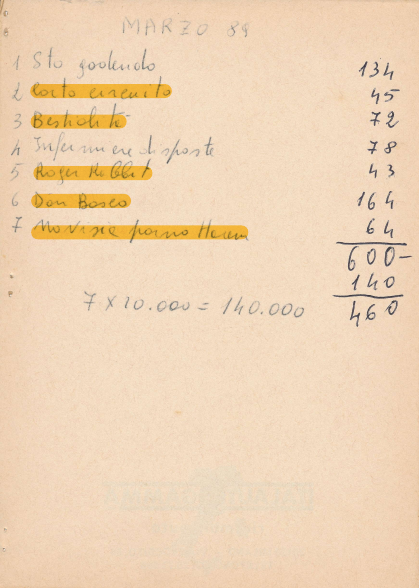 MARZO 89
1 Sto godendo 134
2 Corto circuito 45
3 Bestialità 72
4 Infermiere disposte 78
5 Roger Rabbit 43
6 Don Bosco 164
7 porno Harem 64
600-
140
7 x 20.000 = 140.000
460